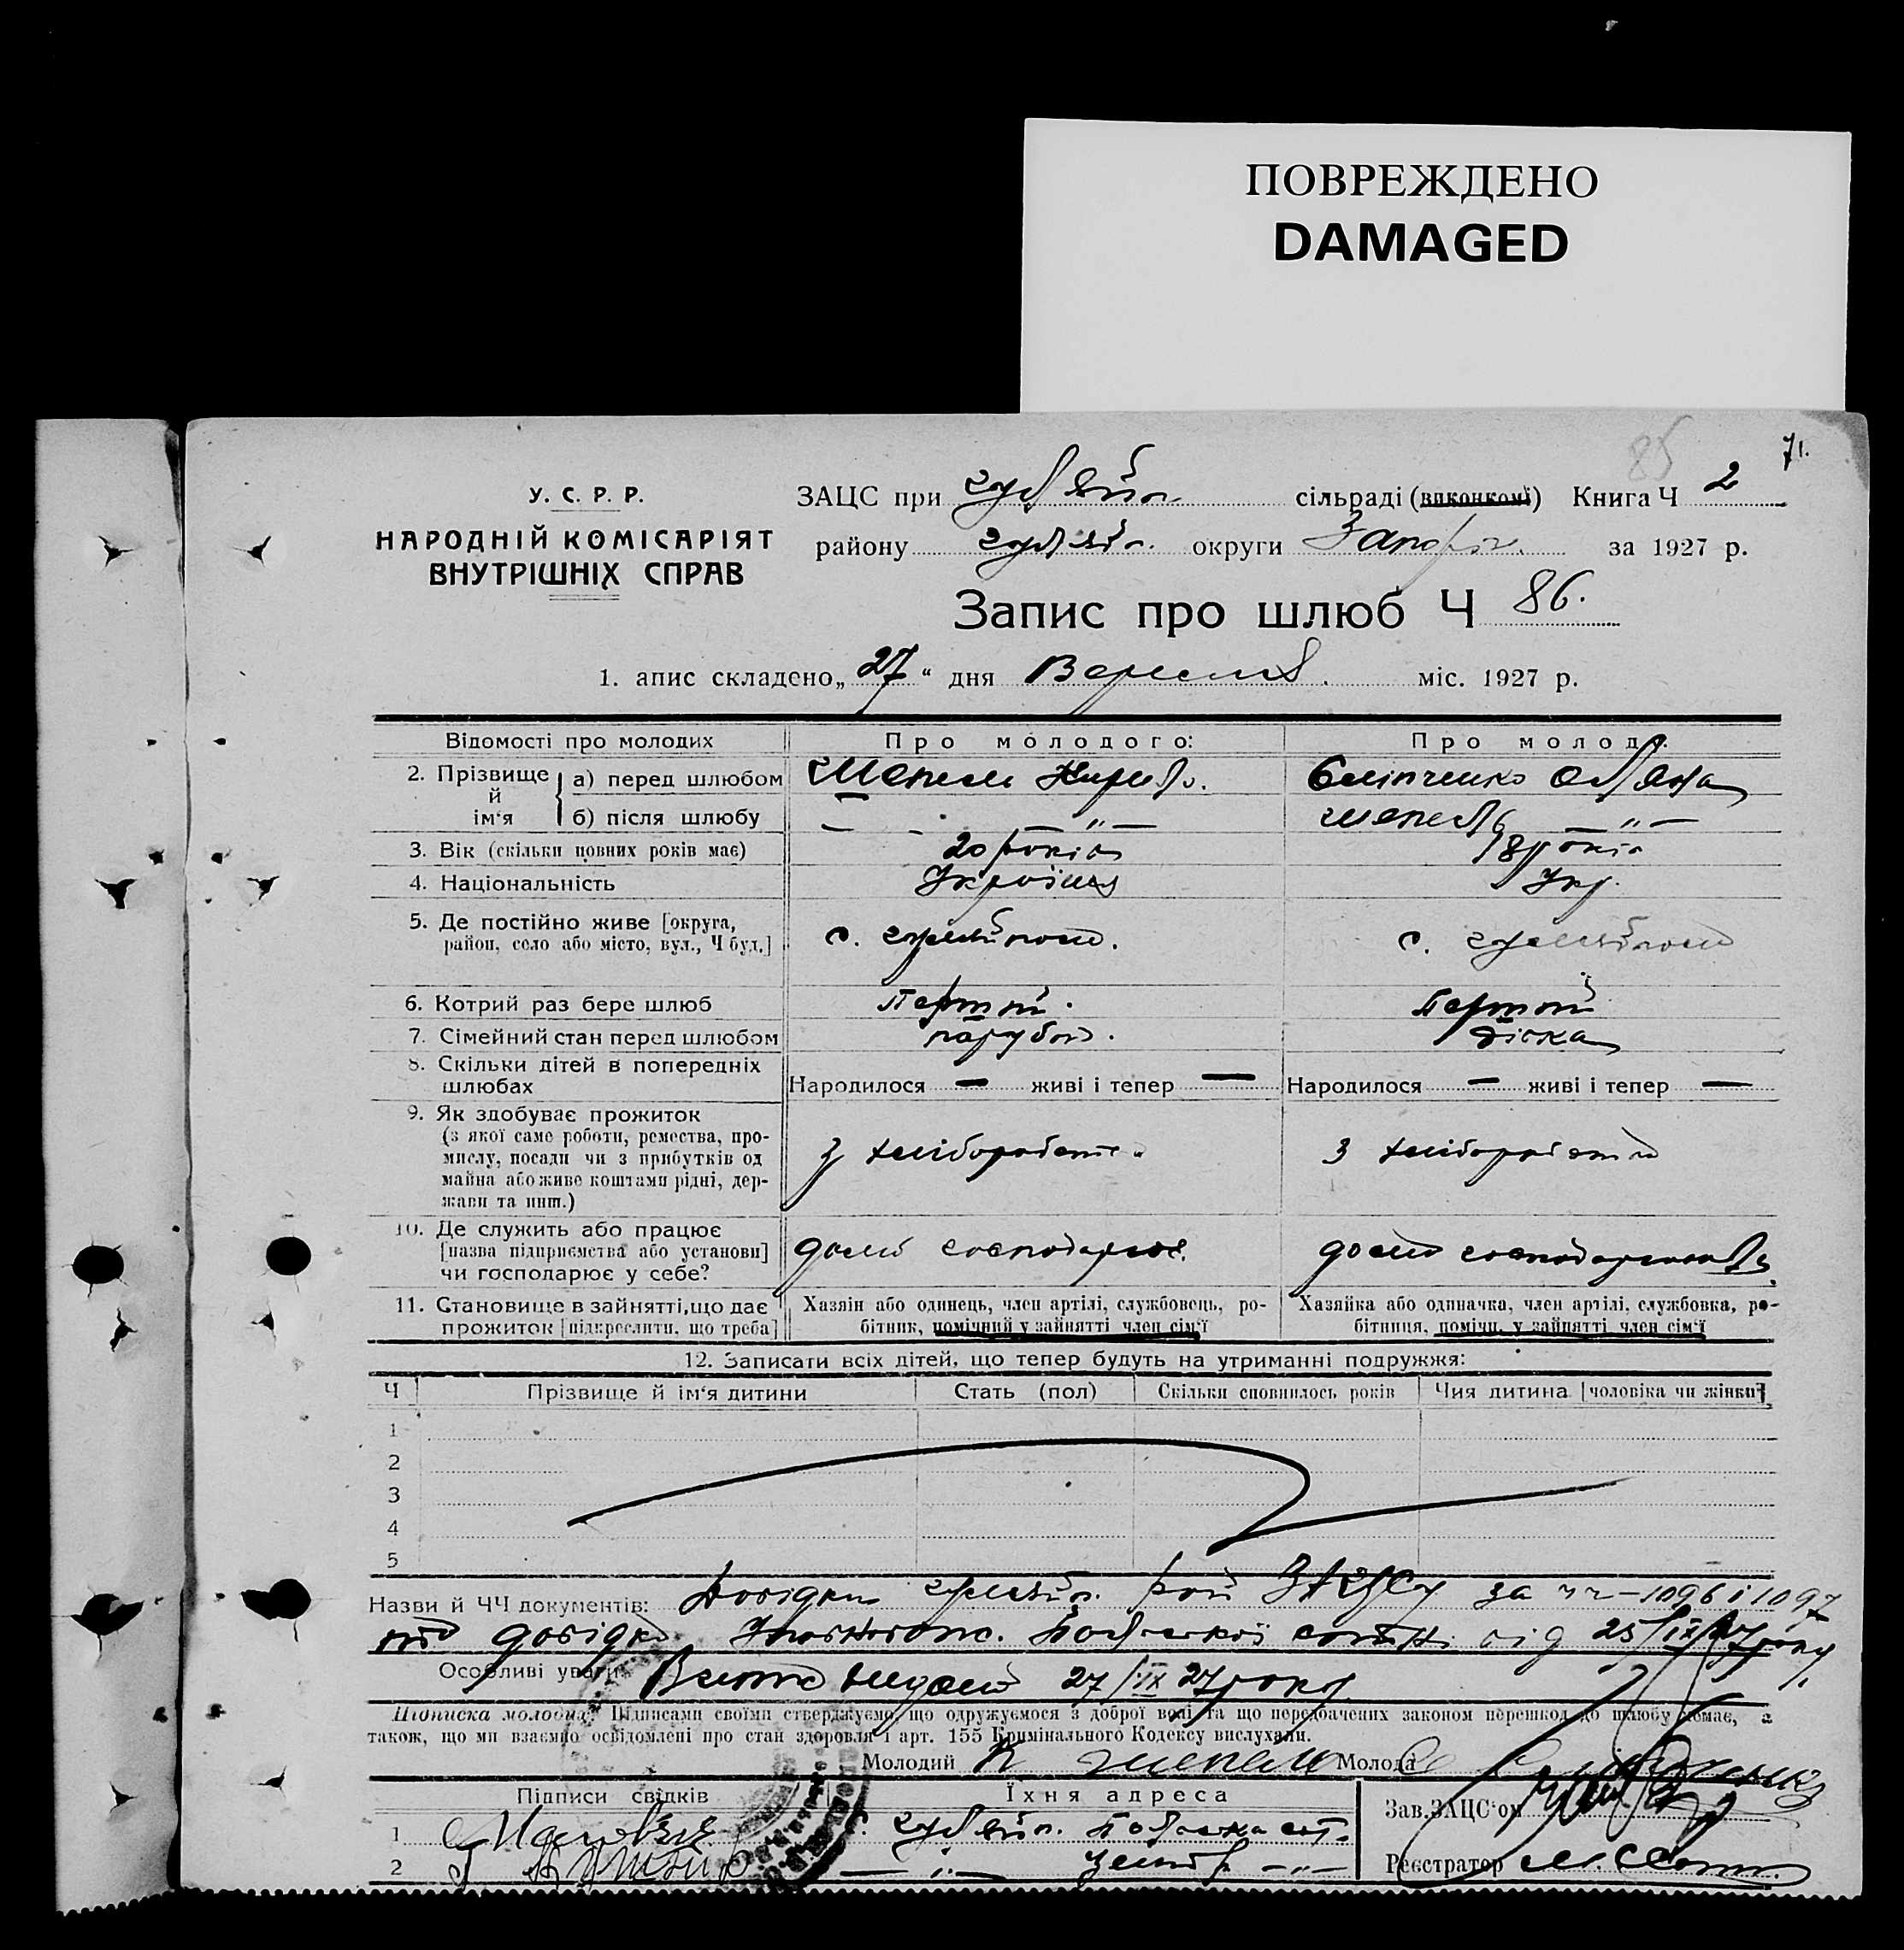 ПОВРЕЖДЕНО
DAMAGED
85
71.
У. С. Р. Р.
НАРОДНІЙ КОМІСАРІЯТ
ВНУТРІШНІХ СПРАВ
ЗАЦС при Гуляйп. сільраді (виконкомі) Книга Ч 2
району Гуляйп. округи Запоріз. за 1927 р.
Запис про шлюб Ч 86.
1. апис складено „27“ дня Вересня. міс. 1927 р.
Відомості про молодих
Про молодого:
Про молоду:
2. Прізвище й ім‘я
а) перед шлюбом
Шепель Кирило.
Олена
б) після шлюбу
— „ —
Шепель — „ —
3. Вік (скільки повних років має)
20 років
18 років
4. Національність
Українец
Укр.
5. Де постійно живе [округа, район, село або місто, вул., Ч буд.]
с. Гуляйполе.
с. Гуляйполе
6. Котрий раз бере шлюб
Перший.
Перший
7. Сімейний стан перед шлюбом
парубок.
дівка
8. Скільки дітей в попередніх шлюбах
Народилося — живі і тепер —
Народилося — живі і тепер —
9. Як здобуває прожиток
(з якої саме роботи, ремества, про-
мислу, посади чи з прибутків од
майна або живе коштами рідні, дер-
жави та инш.)
з хліборобства
з хліборобства
10. Де служить або працює
[назва підприємства або установи]
чи господарює у себе?
дома господарює.
дома
11. Становище в зайнятті, що дає
прожиток [підкреслити, що треба]
Хазяїн або одинець, член артілі, службовець, ро-
бітник, помічний у зайнятті член сім‘ї
Хазяйка або одиначка, член артілі, службовка, ро-
бітниця, помічн. у зайнятті член сім‘ї
12. Записати всіх дітей, що тепер будуть на утриманні подружжя:
Ч
Прізвище й ім‘я дитини
Стать (пол)
Скільки сповнилось років
Чия дитина [чоловіка чи жінки]
1
2
3
4
5
Назви й ЧЧ документів: Довідки Гуляйп. рай ЗАЦСу за чч – 1096 і 1097
довідка сотні від 25/IX 27 року
Особливі уваги: 27/IX 27 року
Підписка молодих: Підписами своїми стверджуємо, що одружуємося з доброї волі та що передбачених законом перешкод до шлюбу немає, а
також, що ми взаємно освідомлені про стан здоровля і арт. 155 Кримінального Кодексу вислухали.
Молодий К Шепель Молода
Підписи свідків
Їхня адреса
Зав.ЗАЦС‘ом
1
Гуляйп.
2
Реєстратор